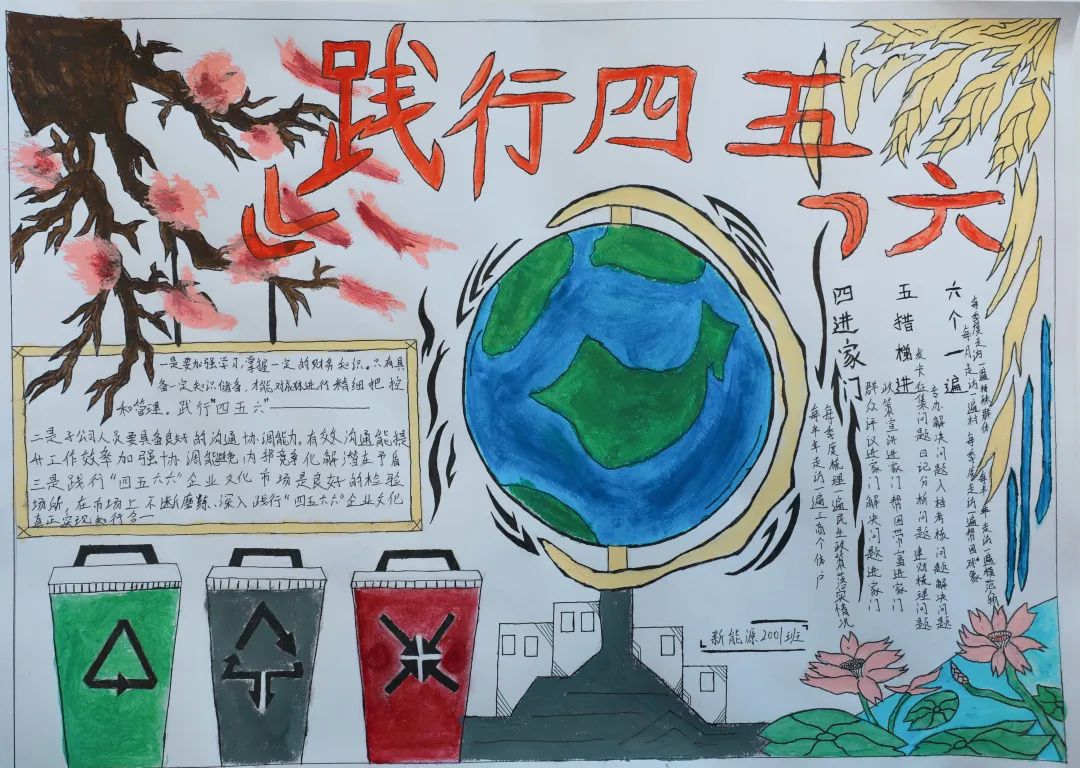 践行四五
六
一是要加强学习，掌握一定的财务知识。只有具
备一定知识储备，才能对成本进行精细把控
和管理。践行“四五六”
二是子公司人员要具备良好的沟通协调能力。有效沟通能提
升工作效率加强协调能避免内部竞争化解潜在矛盾
三是践行“四五六六”企业文化市场是良好的检验
场所，在市场上不断磨练、深入践行“四五六六”企业文化
真正实现知行合一
六个一遍
每季度走访一遍
每月走访一遍村 每季度走访一遍帮困对象
每半年走访一遍模范
五措梯进
专办解决问题 入档考核问题解决问题
发卡征集问题 日记分析问题 建账梳理问题
四进家门
政策宣讲进家门 帮困带富进家门
群众评议进家门 解决问题进家门
每季度梳理一遍民生政策落实情况
每半年走访一遍工商个体户
新能源2001班